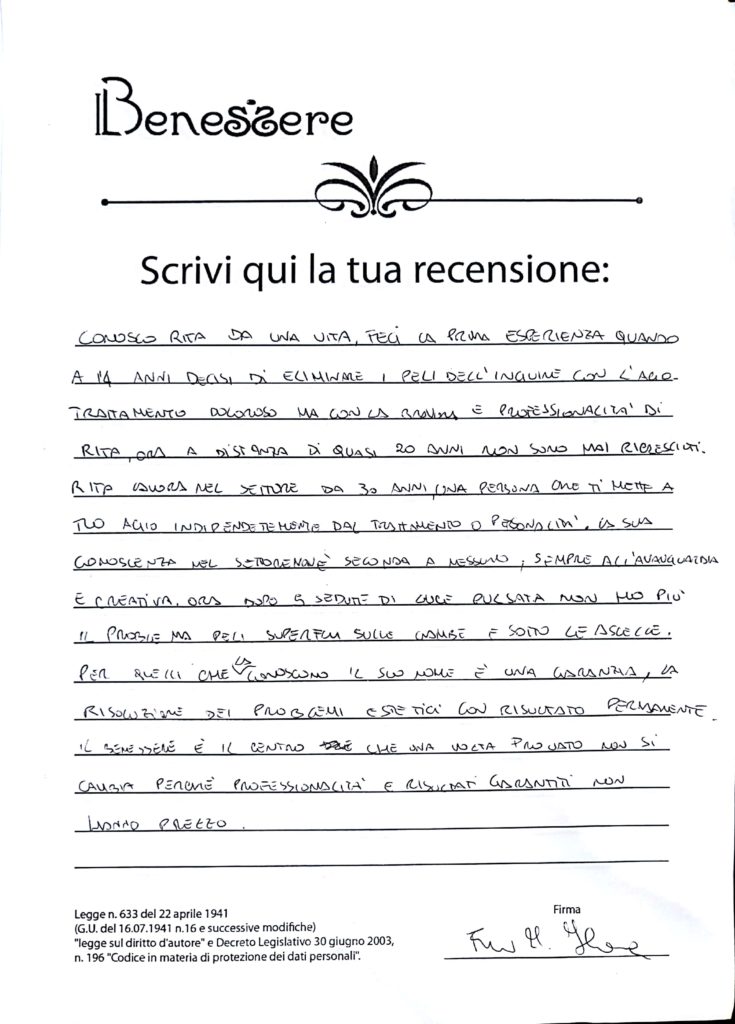 Il Benessere
Scrivi qui la tua recensione:
CONOSCO RITA DA UNA VITA, FECI LA PRIMA ESPERIENZA QUANDO
A 14 ANNI DECISI DI ELIMINARE I PELI DELL'INGUINE CON L'AGO.
TRATTAMENTO DOLOROSO MA CON LA BRAVURA E PROFESSIONALITA' DI
RITA, ORA A DISTANZA DI QUASI 20 ANNI NON SONO MAI RICRESCIUTI.
RITA LAVORA NEL SETTORE DA 30 ANNI, UNA PERSONA CHE TI METTE A
TUO AGIO INDIPENDETEMENTE DAL TRATTAMENTO O PERSONALITA'. LA SUA
CONOSCENZA NEL SETTORE NON E' SECONDA A NESSUNO, SEMPRE ALL'AVANGUARDIA
E CREATIVA. ORA DOPO 5 SEDUTE DI LUCE PULSATA NON HO PIU'
IL PROBLEMA PELI SUPERFLUI SULLE GAMBE E SOTTO LE ASCELLE.
PER QUELLI CHE LA CONOSCONO IL SUO NOME E' UNA GARANZIA, LA
RISOLUZIONE DEI PROBLEMI ESTETICI CON RISULTATO PERMANENTE.
IL BENESSERE E' IL CENTRO CHE UNA VOLTA PROVATO NON SI
CAMBIA PERCHE' PROFESSIONALITA' E RISULTATI GARANTITI NON
HANNO PREZZO.
Legge n. 633 del 22 aprile 1941
(G.U. del 16.07.1941 n.16 e successive modifiche)
"legge sul diritto d'autore" e Decreto Legislativo 30 giugno 2003,
n. 196 "Codice in materia di protezione dei dati personali".
Firma